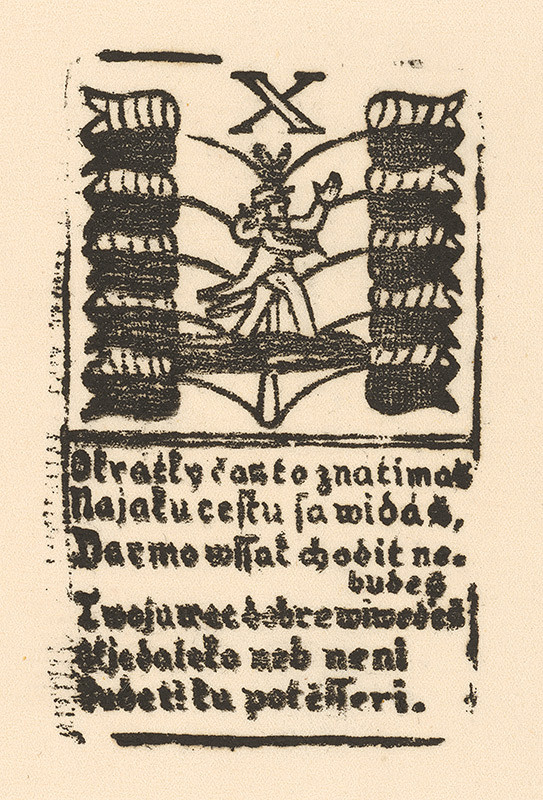 X
Okratky često znatimaš
Najaku cestu sa widáš,
Darmo wssak chodit ne-
budeš
Twoju wec dobre wiwedeš
daleko neb neni
Budeti ku potěsseri.